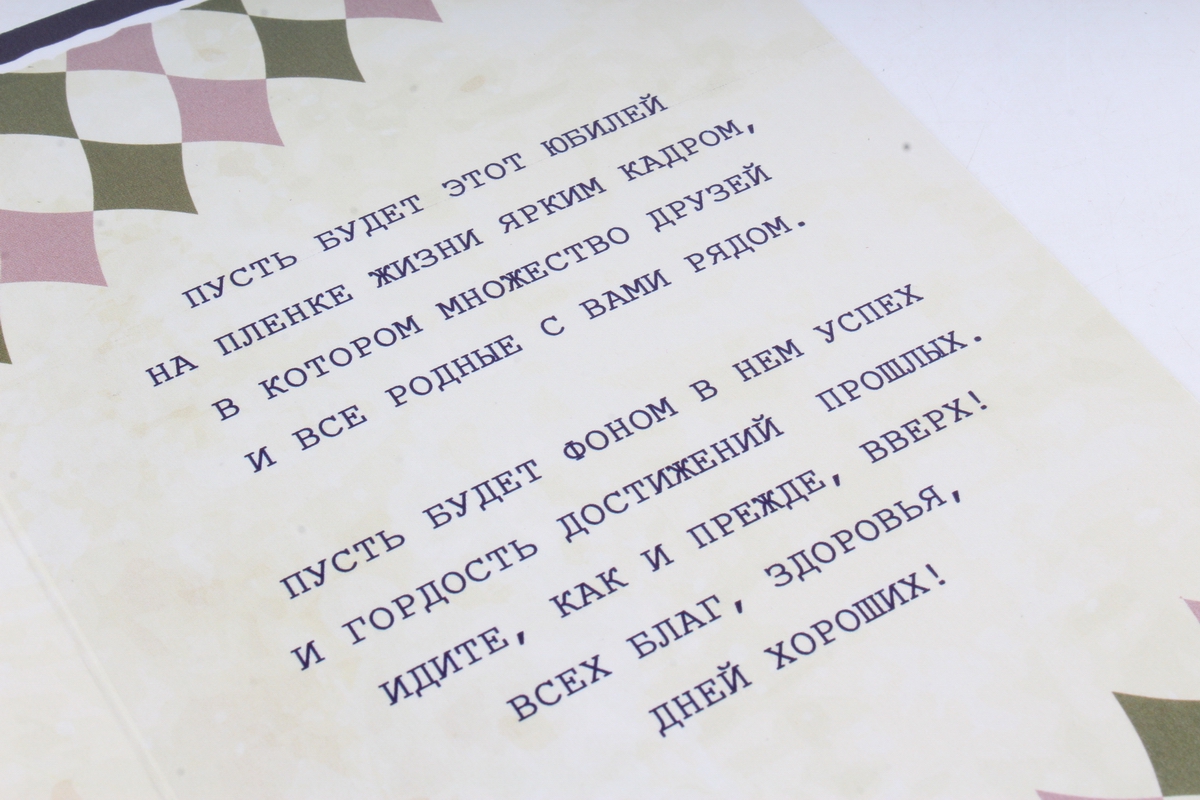 ПУСТЬ БУДЕТ ЭТОТ ЮБИЛЕЙ
НА ПЛЕНКЕ ЖИЗНИ ЯРКИМ КАДРОМ,
В КОТОРОМ МНОЖЕСТВО ДРУЗЕЙ
И ВСЕ РОДНЫЕ С ВАМИ РЯДОМ.
ПУСТЬ БУДЕТ ФОНОМ В НЕМ УСПЕХ
И ГОРДОСТЬ ДОСТИЖЕНИЙ ПРОШЛЫХ.
ИДИТЕ, КАК И ПРЕЖДЕ, ВВЕРХ!
ВСЕХ БЛАГ, ЗДОРОВЬЯ,
ДНЕЙ ХОРОШИХ!